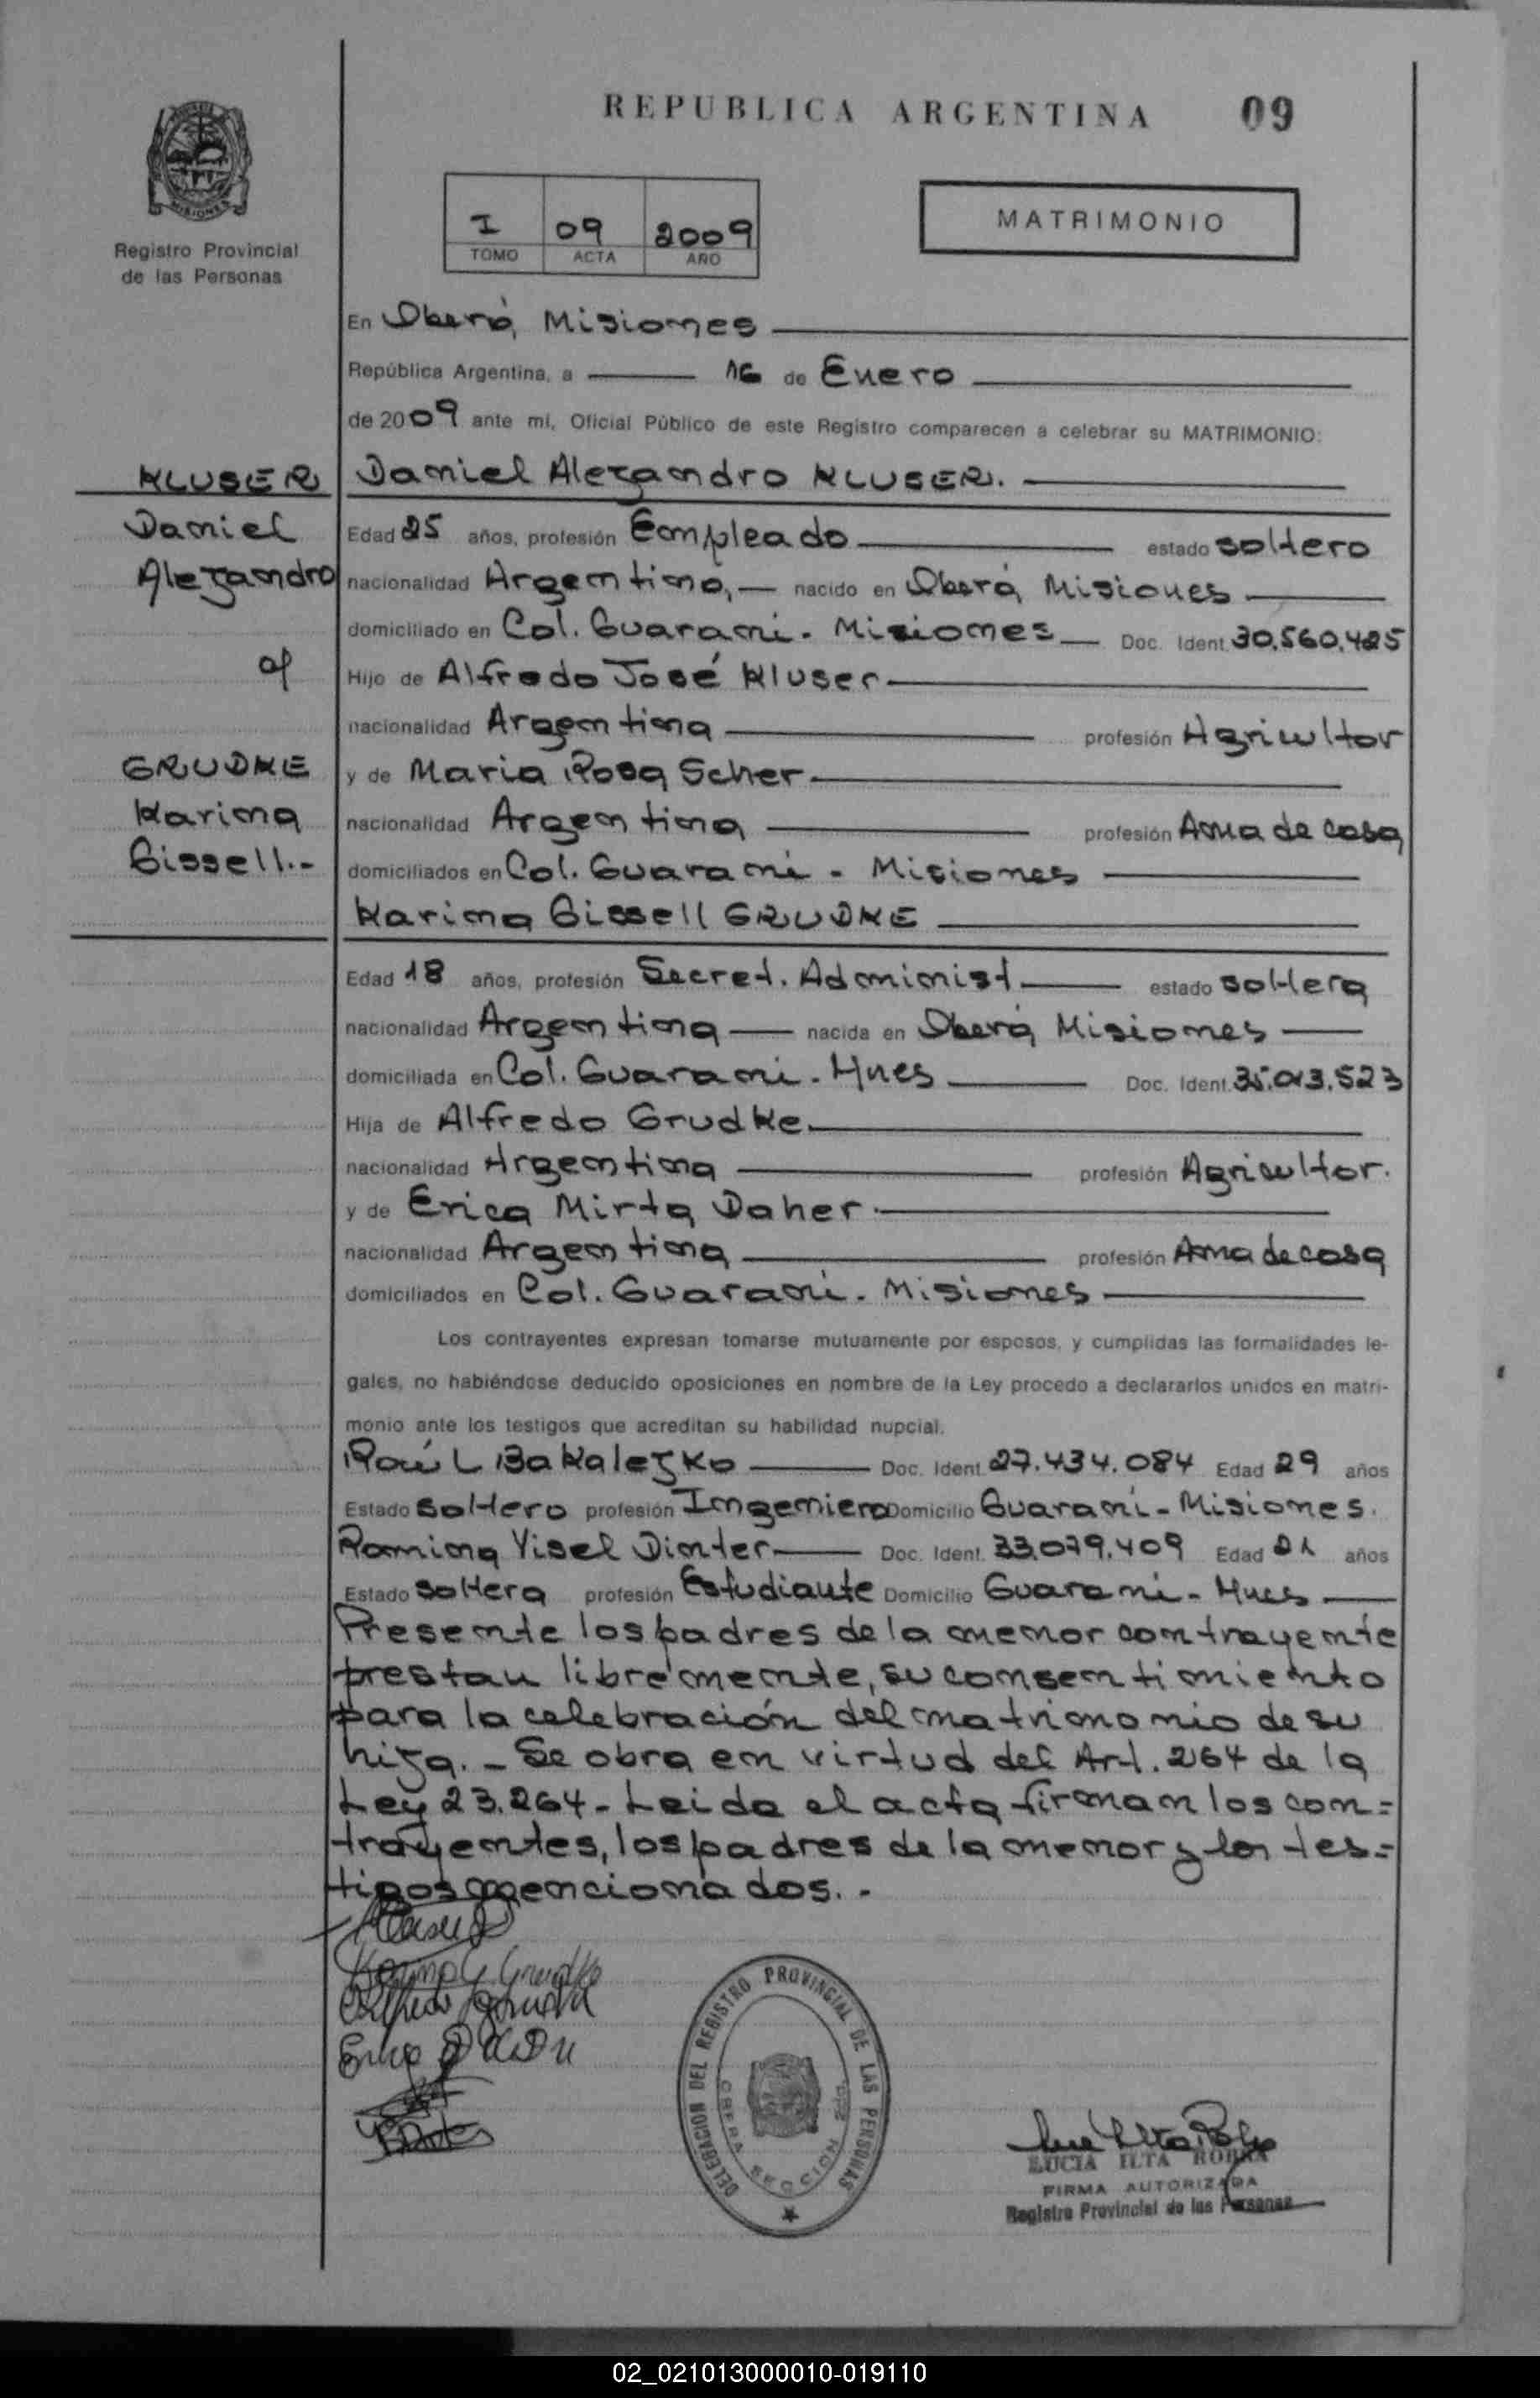 REPUBLICA ARGENTINA 09
MISIONES
Registro Provincial
de las Personas
I 09 2009
TOMO ACTA AÑO
MATRIMONIO
En Oberá, Misiones
República Argentina, a 16 de Enero
de 2009 ante mi, Oficial Público de este Registro comparecen a celebrar su MATRIMONIO:
KLUSER Daniel Alejandro KLUSER.
Daniel Edad 25 años, profesión Empleado estado soltero
Alejandro nacionalidad Argentina, nacido en Oberá, Misiones
domiciliado en Col. Guaraní. Misiones Doc. Ident. 30.560.425
Hijo de Alfredo José Kluser
nacionalidad Argentina profesión Agricultor
GRUDKE y de Maria Rosa Scher
Karina nacionalidad Argentina profesión Ama de casa
Gissell.- domiciliados en Col. Guaraní - Misiones
Karina Gissell GRUDKE
Edad 18 años, profesión Secret. Administ. estado soltera
nacionalidad Argentina nacida en Oberá, Misiones
domiciliada en Col. Guaraní. Mnes Doc. Ident. 35.013.523
Hija de Alfredo Grudke.
nacionalidad Argentina profesión Agricultor.
y de Erica Mirta Daher.
nacionalidad Argentina profesión Ama de casa
domiciliados en Col. Guaraní. Misiones
Los contrayentes expresan tomarse mutuamente por esposos, y cumplidas las formalidades le-
gales, no habiéndose deducido oposiciones en nombre de la Ley procedo a declararlos unidos en matri-
monio ante los testigos que acreditan su habilidad nupcial.
Raúl Bakalezko Doc. Ident. 27.434.084 Edad 29 años
Estado soltero profesión Ingeniero Domicilio Guaraní - Misiones.
Romina Yisel Dinter Doc. Ident. 33.079.409 Edad 21 años
Estado soltera profesión Estudiante Domicilio Guaraní - Mnes
Presente los padres de la menor contrayente
prestan libremente, su consentimiento
para la celebración del matrimonio de su
hija. - Se obra en virtud del Art. 264 de la
Ley 23.264 - Leida el acta firman los con=
trayentes, los padres de la menor y los tes=
tigos mencionados. -
Karina G Grudke
DELEGACION DEL REGISTRO PROVINCIAL DE LAS PERSONAS
OBERA SECCION 2da.
LUCIA ILTA
FIRMA AUTORIZADA
Registro Provincial de las Personas
02_021013000010-019110